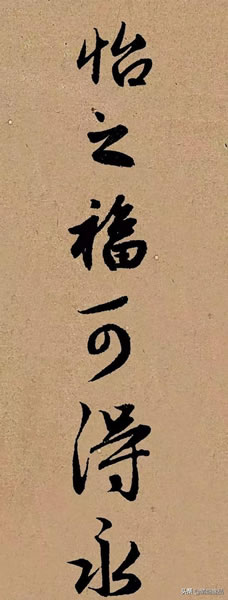 怡之福可得永